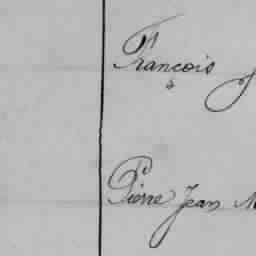 Francois
Pierre Jean